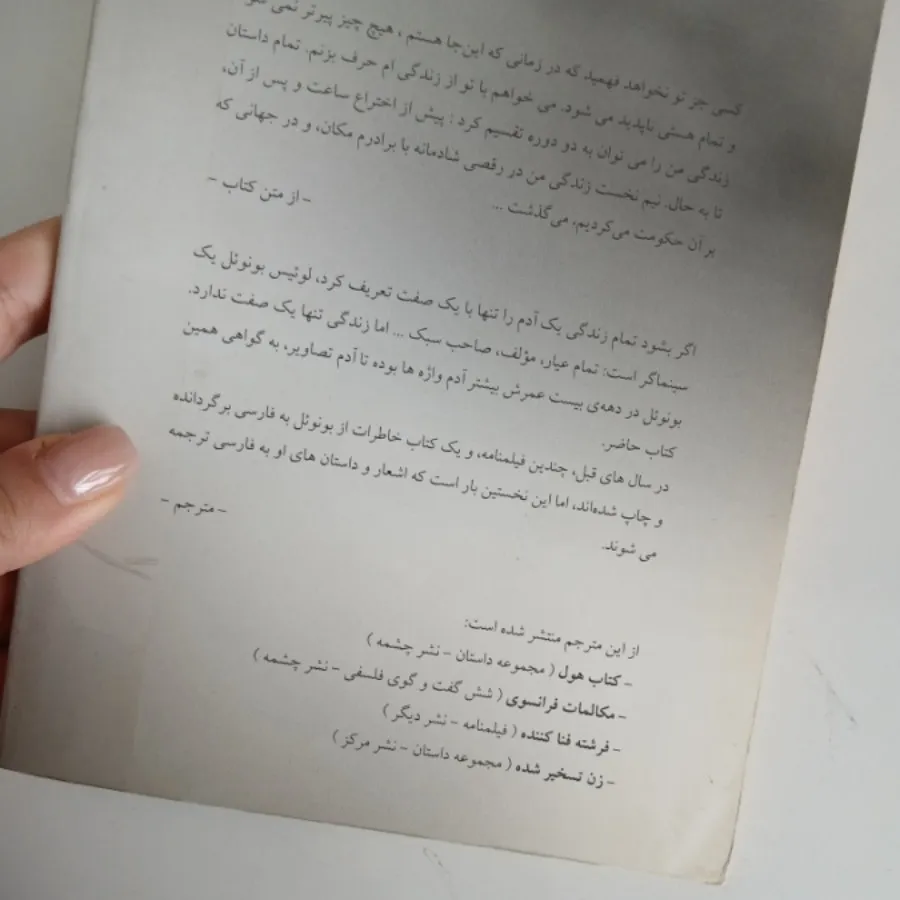 کسی جز تو نخواهد فهمید که در زمانی که این‌جا هستم ، هیچ چیز پیرتر نمی
و تمام هستی ناپدید می شود. می خواهم با تو از زندگی ام حرف بزنم. تمام داستان
زندگی من را می توان به دو دوره تقسیم کرد : پیش از اختراع ساعت و پس از آن،
تا به حال. نیم نخست زندگی من در رقصی شادمانه با برادرم مکان، و در جهانی که
بر آن حکومت می‌کردیم، می‌گذشت ...
- از متن کتاب -
اگر بشود تمام زندگی یک آدم را تنها با یک صفت تعریف کرد، لوئیس بونوئل یک
سینماگر است: تمام عیار، مؤلف، صاحب سبک ... اما زندگی تنها یک صفت ندارد.
بونوئل در دهه‌ی بیست عمرش بیشتر آدم واژه ها بوده تا آدم تصاویر، به گواهی همین
کتاب حاضر.
در سال های قبل، چندین فیلمنامه، و یک کتاب خاطرات از بونوئل به فارسی برگردانده
و چاپ شده‌اند، اما این نخستین بار است که اشعار و داستان های او به فارسی ترجمه
می شوند.
- مترجم -
از این مترجم منتشر شده است:
- کتاب هول ( مجموعه داستان - نشر چشمه )
- مکالمات فرانسوی ( شش گفت و گوی فلسفی - نشر چشمه )
- فرشته فنا کننده ( فیلمنامه - نشر دیگر )
- زن تسخیر شده ( مجموعه داستان - نشر مرکز )